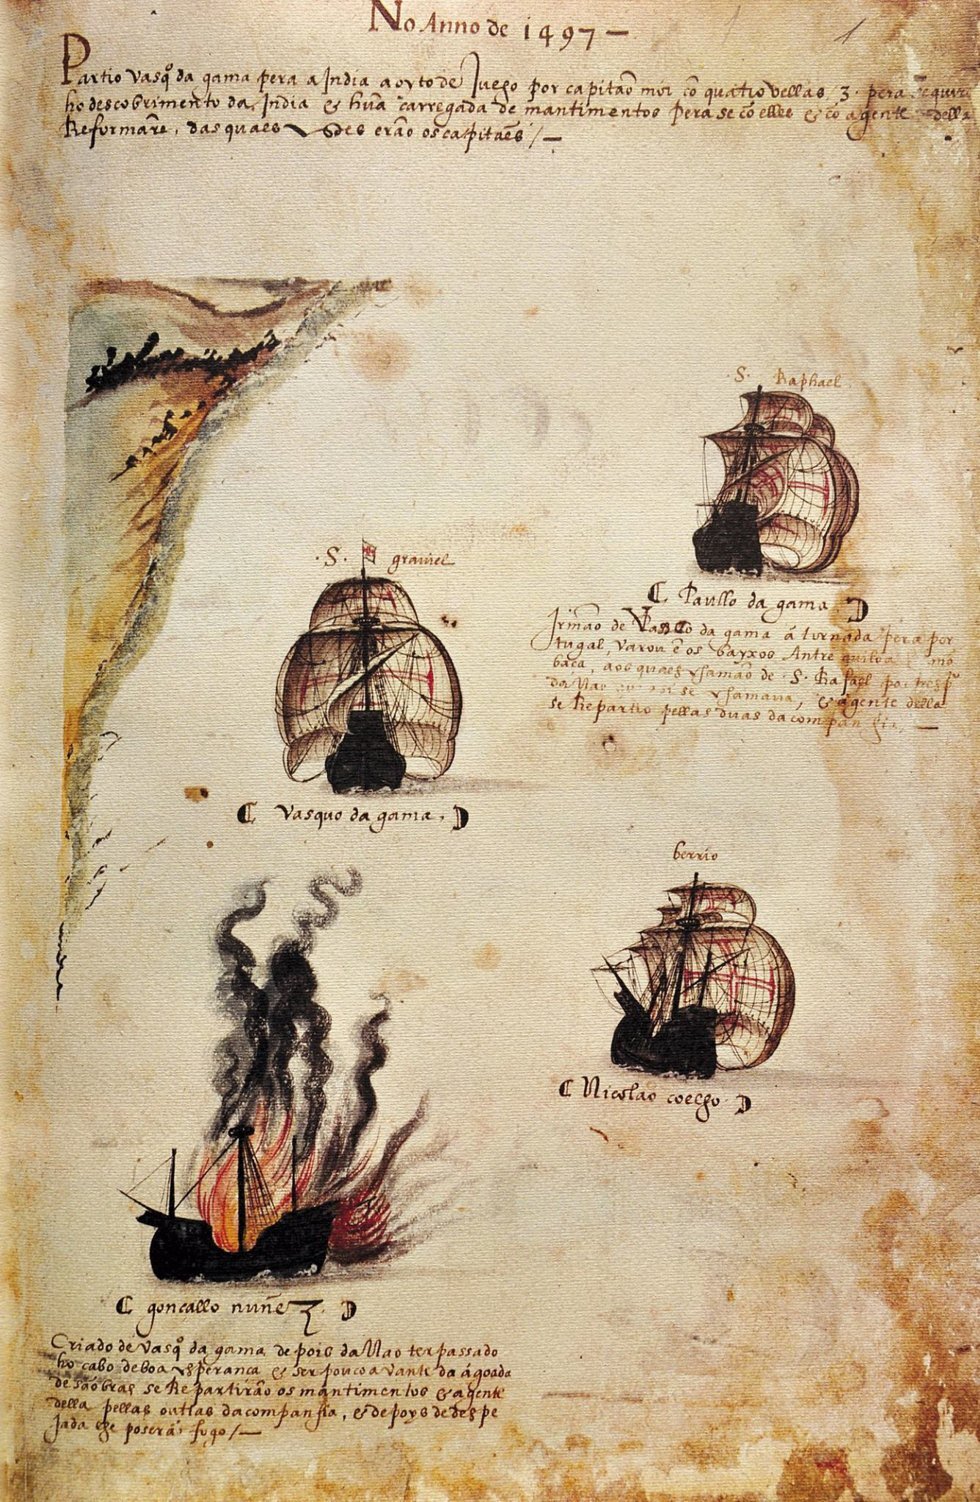 No Anno de 1497 —
Partio Vasqo da gama pera a India a oyto de Julho por capitaõ mòr cõ quatro vellas, 3. pera
ho descobrimento da India & hũa carregada de mantimentos pera se cõ elles & cõ a gente della
Reformarẽ, das quaes eraõ os capitaẽs /—
S. Raphael
.S. graviel
( Paullo da gama )
Irmaõ de Vasco da gama á tornada pera por
tugal, varou ẽ os bayxos Antre quiloa mõ
baça, aos quaes chamaõ de .S. Rafael por
da Nao se chamava, & a gente della
se Repartio pellas duas da companhia, —
( Vasquo da gama, )
berrio
( Nicolao coelho )
( gonçallo nunẽz. )
Criado de Vasqo da gama depois da Nao ter passado
ho cabo de boa esperança & ser pouco avante da ágoada
de saõ bras se Repartiraõ os mantimentos & a gente
della pellas outras da companhia, & depoys de despe
jada lhe poseraõ fogo /—